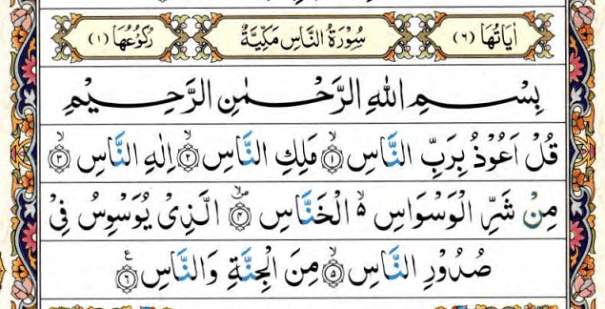 اٰيَاتُهَا (٦) سُوْرَةُ النَّاسِ مَكِّيَّةٌ رُكُوْعُهَا (١)
بِسْـــمِ اللهِ الرَّحْــمٰنِ الرَّحِـــيْمِ
قُلْ اَعُوْذُ بِرَبِّ النَّاسِ ۙ﴿١﴾ مَلِكِ النَّاسِ ۙ﴿٢﴾ اِلٰهِ النَّاسِ ۙ﴿٣﴾
مِنْ شَرِّ الْوَسْوَاسِ ۙ۬ الْخَنَّاسِ ۪ۙ﴿٤﴾ الَّذِىْ يُوَسْوِسُ فِىْ
صُدُوْرِ النَّاسِ ۙ﴿٥﴾ مِنَ الْجِنَّةِ وَالنَّاسِ ﴿٦﴾ ع